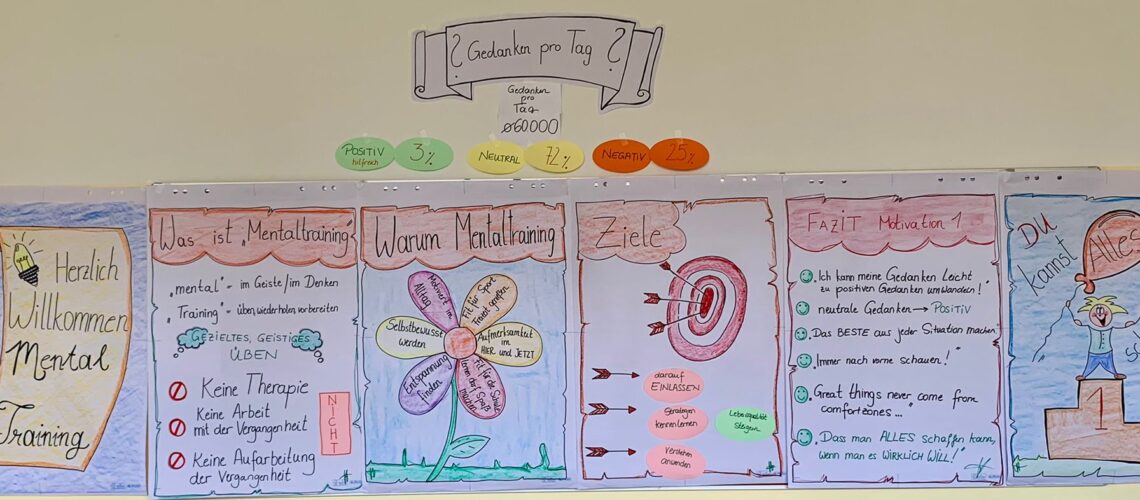 ? Gedanken pro Tag ?
Gedanken
pro
Tag
⌀60.000
POSITIV
hilfreich
3%
NEUTRAL
72%
NEGATIV
25%
Herzlich
Willkommen
Mental
Training
Was ist „Mentaltraining"
„mental" - im Geiste/im Denken
„Training" - üben, wiederholen, vorbereiten
GEZIELTES, GEISTIGES
ÜBEN
Keine Therapie
Keine Arbeit
mit der Vergangenheit
Keine Aufarbeitung
der Vergangenheit
NICHT
Warum Mentaltraining
Motiviert im
Alltag
Fit für Sport
Freizeit
Selbstbewusst
werden
Aufmerksamkeit
im
HIER und JETZT
Entspannung
finden
Fit für die Schule
Ziele
darauf
EINLASSEN
Strategien
kennenlernen
Lebensqualität
steigern
Verstehen
anwenden
FAZIT Motivation 1
„Ich kann meine Gedanken Leicht
zu positiven Gedanken umwandeln!"
neutrale Gedanken → POSITIV
„Das BESTE aus jeder Situation machen"
„Immer nach vorne schauen!"
Great things never come from
comfortzones...
„Dass man ALLES schaffen kann,
wenn man es WIRKLICH WILL!"
DU
kannst
Alles
1